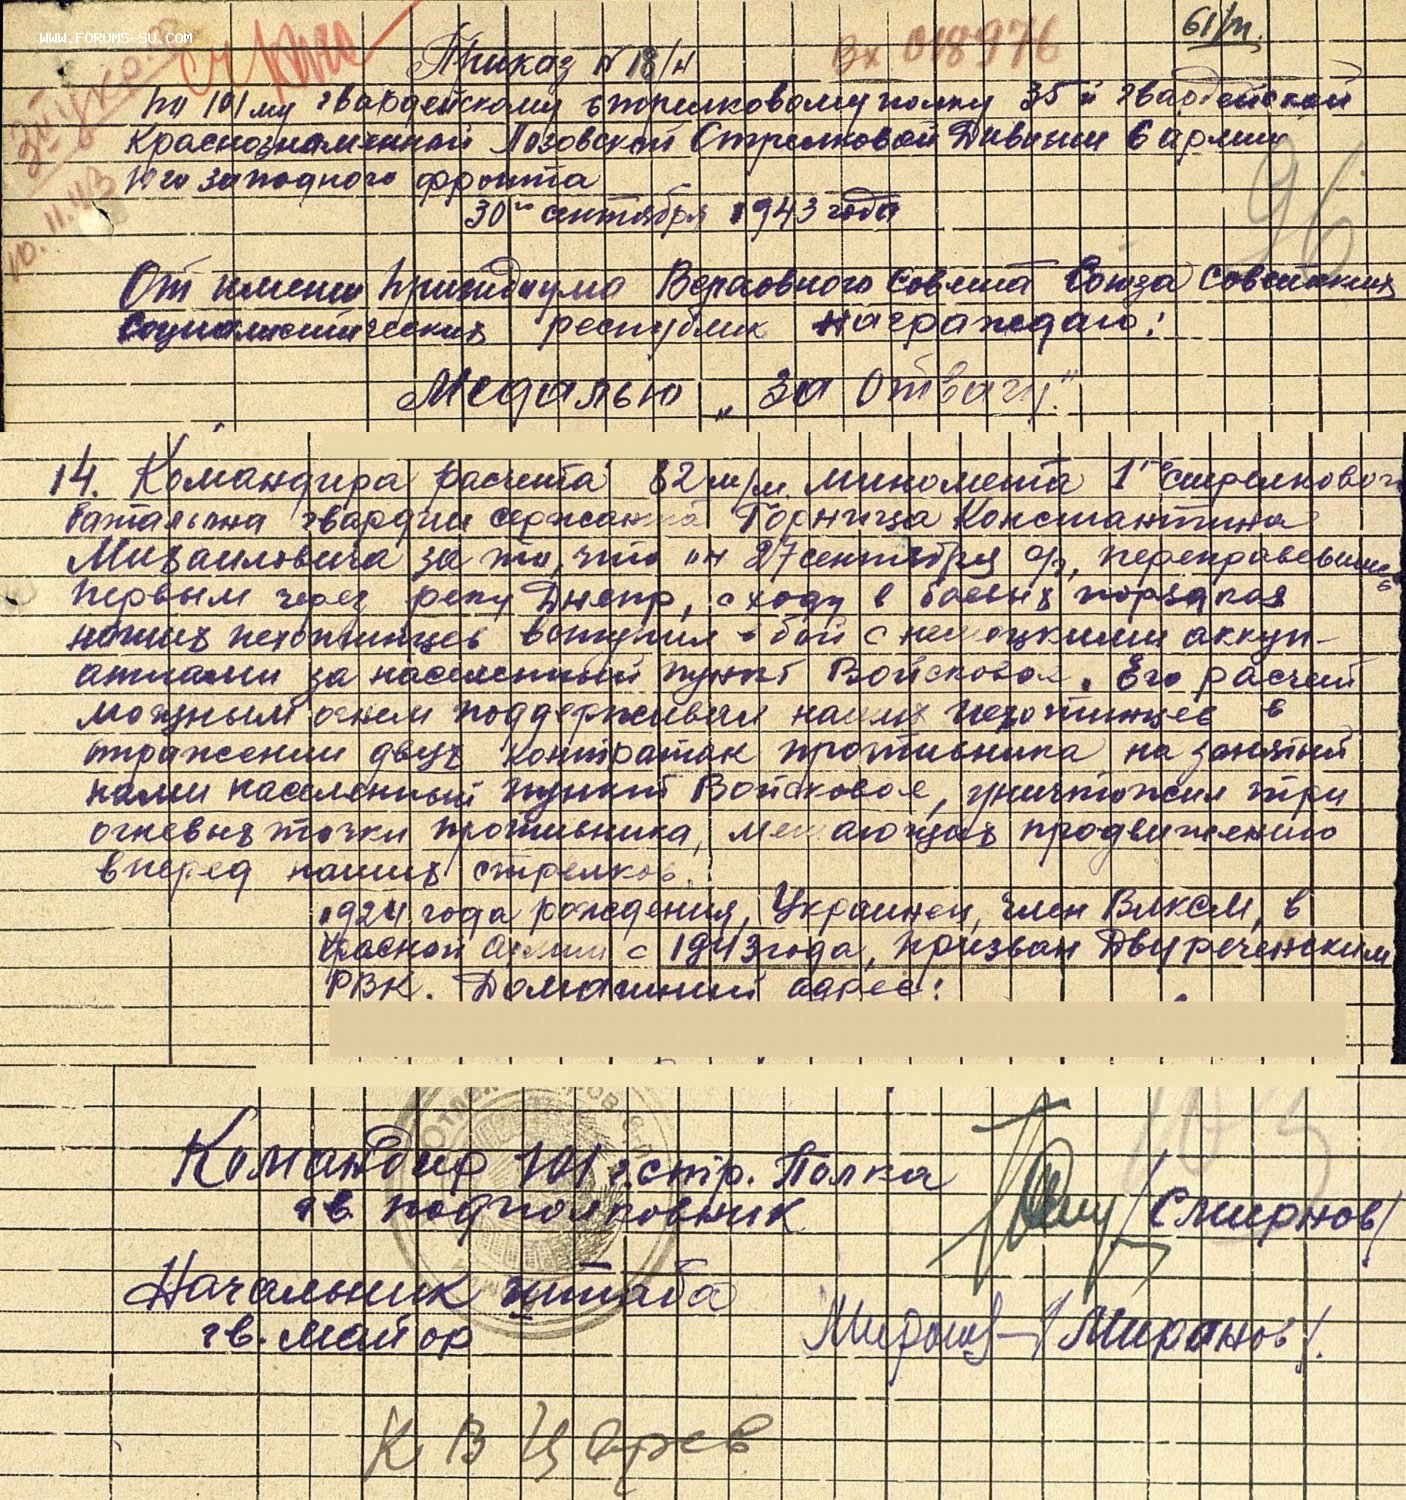 WWW.FORUMS-SU.COM
61/п.
Вх 018976
Приказ N 18/н
по 101му гвардейскому стрелковому полку 35й гвардейской
Краснознаменной Лозовской Стрелковой Дивизии 6 армии
Юго западного фронта
10.11.43
30го сентября 1943 года
96
От имени Президиума Верховного Совета Союза Советских
Социалистических республик награждаю:
Медалью „За Отвагу"
14. Командира расчета 82 м/м миномета 1го стрелкового
батальона гвардии сержанта Горнича Константина
Михайловича за то, что он 27 сентября с/г, переправевшись
первым через реку Днепр, сходу в боевых порядках
наших пехотинцев вступил в бой с немецкими аккуп-
антами за населенный пункт Войсковое. Его расчет
мощным огнем поддерживал наших пехотинцев в
отражении двух контратак противника на занятый
нами населенный пункт Войсковое, уничтожил три
огневых точки противника, мешающих продвижению
вперед наших стрелков.
1924 года рождения, Украинец, член ВЛКСМ, в
Красной Армии с 1943 года, призван Двуреченским
РВК. Домашний адрес:
Командир 101 г. стр. Полка
гв. подполковник /Смирнов/
Начальник штаба
гв. майор Миронов /Миронов/.
К В Царев